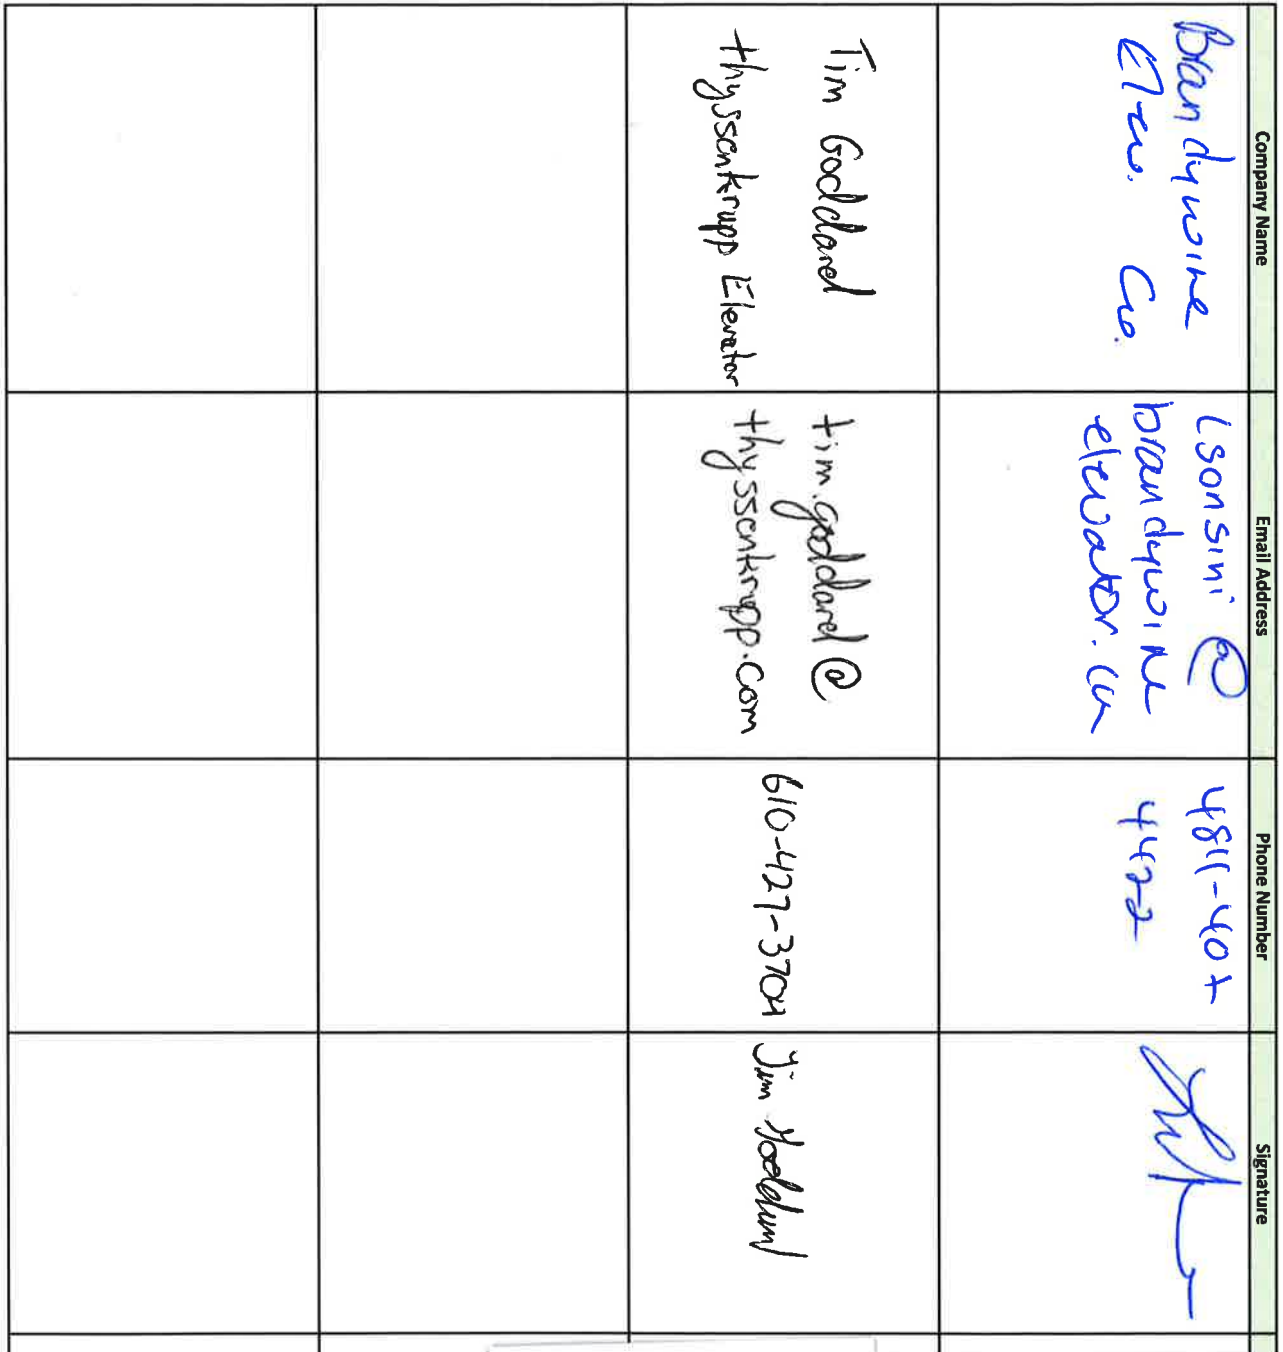 Company Name Email Address Phone Number Signature
Brandywine
Elev. Co.
lsonsini @
brandywine
elevator.com
4422
Tim Goddard
thyssenkrupp Elevator
tim.goddard @
thyssenkrupp.com
610-427-3704
Tim Goddard